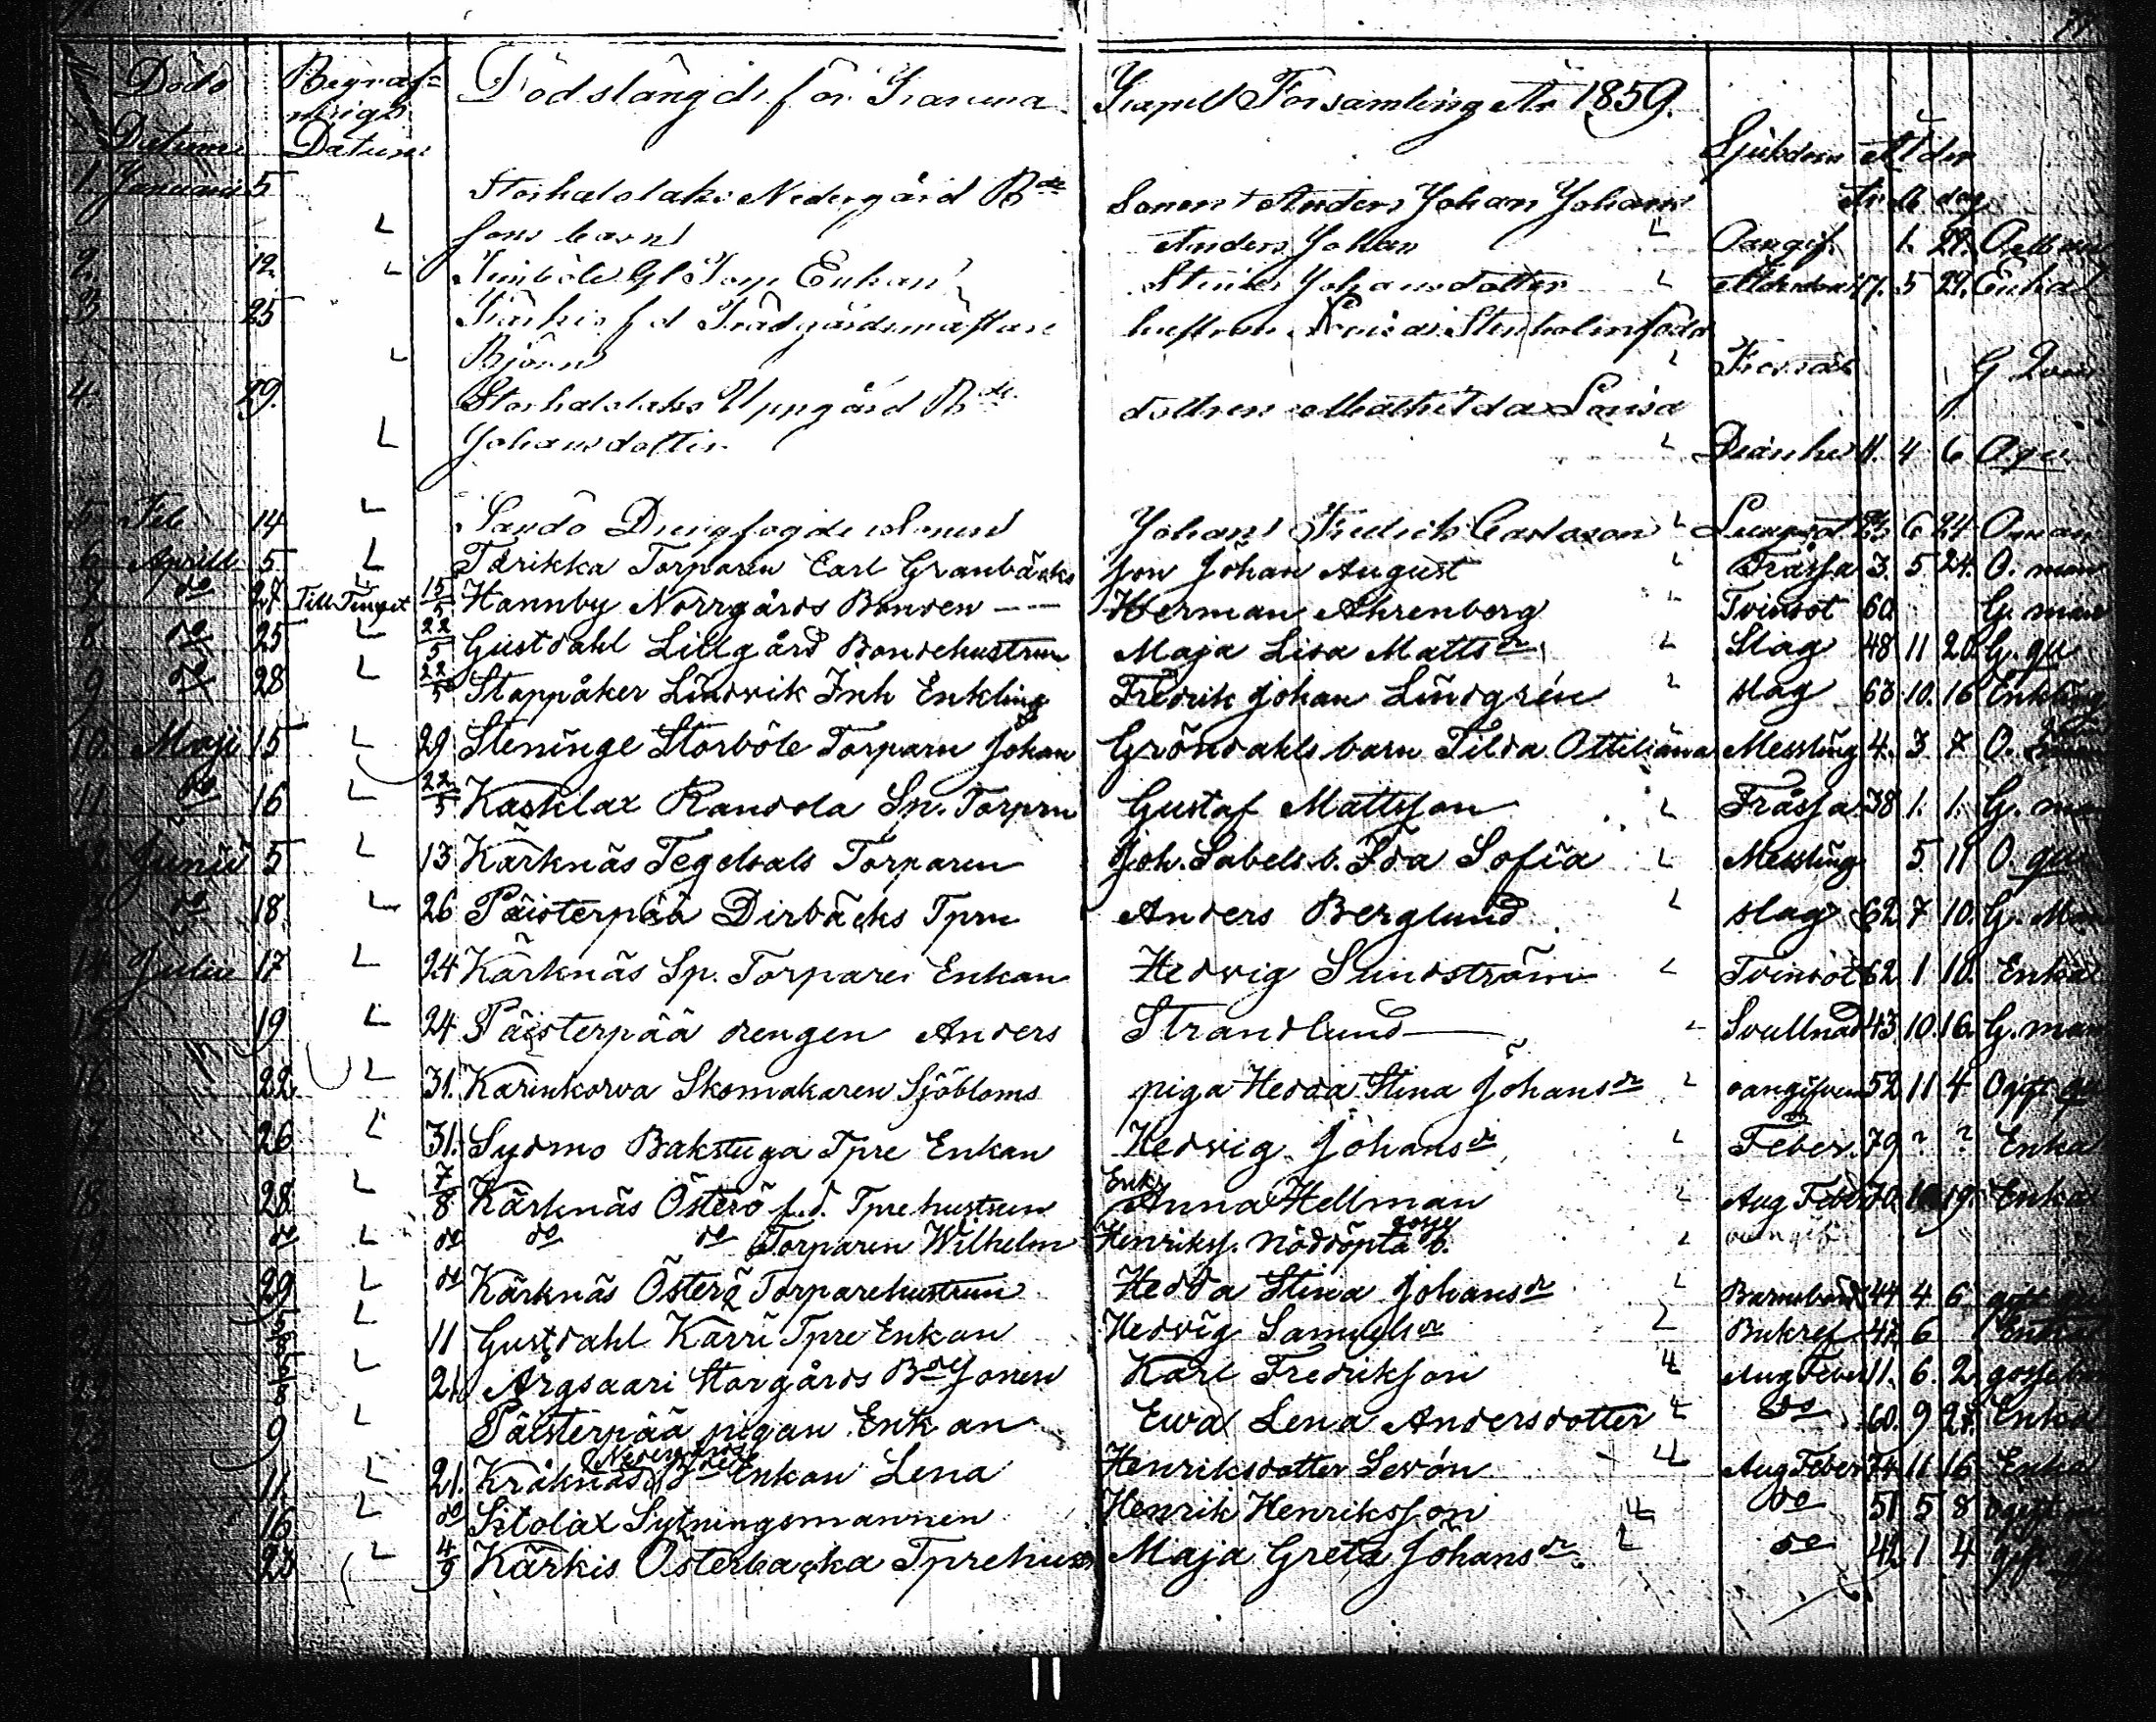 Döds Datum Begrafnings Datum Dödslängd för Karuna Kapell Församling År 1859.
Sjukdom Ålder
1. Januari 5 Storhalslaks Nedergård Bde Sonens Anders Johan Johans År M dag
L sons barn Anders Johan L Oangif. 1. 29.
2. 12. L Enkan Stina Johansdotter L 5 29. Enka
3. 25 Kärkis f d Trädgårdsmästare hustrun Lovisa Stenholm född
L Björn L G. Qvin
4. 29. Storhalslaks Uppgård Bde dottren Mathilda Lovisa
L Johansdotter L 11. 4 6 O.qv.
5 Feb 14 L Sandö Drengfogde Sonen Johan Fredrick Carlsson L Lungsot 23 6 24 O.man
6. Aprill 5 L Torparen Carl Granbäcks son Johan August L Frässa 3. 5. 24. O. man
7 do 27 Till Tinget 15/5 Hannby Norrgårds Bonden Herman Ahrenberg L Tvinsot 60. G. man
8. do 25 L 22/5 Gustdahl Lillgård Bondehustrun Maja Lisa Mattsdr L Slag 48 11 20 G. qv
9 do 28 L 22/5 Stappåker Lindvik Inh Enkling Fredrik Johan Lindgrén L slag 63. 10. 16 Enkling
10. Maji 15 L 29 Steninge Storböle Torparn Johan Gröndahls barn Tilda Ottiliana Messling 4. 3. 7 O.
11. do 16 L 22/5 Kasklax Randola Sp. Torprn Gustaf Mattsson L Frässa 38 1. 1. G. man
Junii 5 L 13 Kärknäs Tegelsals Torparen Joh. Sabels b. Ida Sofia L Messling 5 11 O. qv
do 18. L 26 Päisterpää Dirbäcks Tprn Anders Berglund L slag 62 7 10. G. Man
14 Julii 17 L 24 Kärknäs Sp. Torpare Enkan Hedvig Sundström L Tvinsot 62 1 10. Enka
15. 19 L 24 Päisterpää drengen Anders Strandlund L Svullnad 43. 10. 16. G. man
16. 22. L 31. Karinkorva Skomakaren Sjöbloms piga Hedda Stina Johansdr L oangifven 52 11 4 Ogift qv
17. 26 L 31. Sydmo Bakstuga Tpre Enkan Hedvig Johansdr L Feber. 79 ? ? Enka
18. 28 L 7/8 Kärknäs Österö f.d. Tprehustrun Enk. Anna Hellman L Aug Feber 70. 10 19. Enka
19 do L do do do Torparen Wilhelm Henrikss. nöddöpta gosse b. L oangif
29 L do Kärknäs Österö Torparehustrun Hedda Stina Johansdr L Barnsbörd 44 4 6 gift qv
5/8 L 11 Gustdahl Karri Tpre Enkan Hedvig Samuelsdr L Bukref 47 6 Enka
6/8 L 21. Årgsaari Storgårds Bde Sonen Karl Fredriksson L Aug Feber 11. 6. 2. gosse
9 L Päisterpää pigan Enkan Ewa Lena Andersdotter L do 60. 9 27. Enka
11. L 21. Kråknäs Nedergård Bde Enkan Lena Henriksdotter Levón L Aug Feber 74 11 16 Enka
16 L do Sitolax Sytningsmannen Henrik Henriksson L do 51. 5 8 ogift
23 L 4/9 Kärkis Österbacka Tprehust Maja Greta Johansdr L do 42 1 4 gift